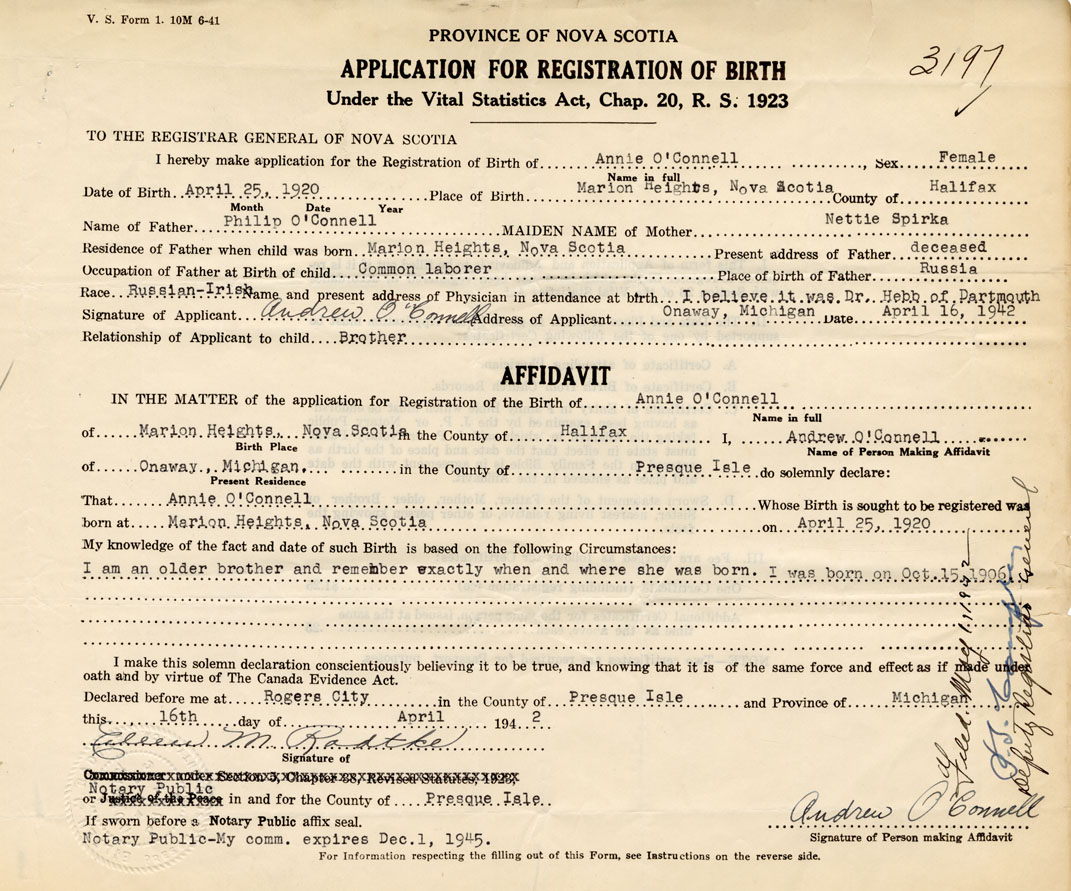 V. S. Form 1. 10M 6-41
PROVINCE OF NOVA SCOTIA
3197
APPLICATION FOR REGISTRATION OF BIRTH
Under the Vital Statistics Act, Chap. 20, R. S. 1923
TO THE REGISTRAR GENERAL OF NOVA SCOTIA
I hereby make application for the Registration of Birth of Annie O'Connell, Sex Female
Name in full
Date of Birth April 25, 1920 Place of Birth Marion Heights, Nova Scotia County of Halifax
Month Date Year
Name of Father Philip O'Connell MAIDEN NAME of Mother Nettie Spirka
Residence of Father when child was born Marion Heights, Nova Scotia Present address of Father deceased
Occupation of Father at Birth of child Common laborer Place of birth of Father Russia
Race Russian-Irish Name and present address of Physician in attendance at birth I believe it was Dr. Hebb of Dartmouth
Signature of Applicant Andrew O'Connell Address of Applicant Onaway, Michigan Date April 16, 1942
Relationship of Applicant to child Brother
AFFIDAVIT
IN THE MATTER of the application for Registration of the Birth of Annie O'Connell
Name in full
of Marion Heights, Nova Scotia in the County of Halifax I, Andrew O'Connell
Birth Place Name of Person Making Affidavit
of Onaway, Michigan, in the County of Presque Isle do solemnly declare:
Present Residence
That Annie O'Connell Whose Birth is sought to be registered was
born at Marion Heights, Nova Scotia on April 25, 1920
My knowledge of the fact and date of such Birth is based on the following Circumstances:
I am an older brother and remember exactly when and where she was born. I was born on Oct.15,1906
I make this solemn declaration conscientiously believing it to be true, and knowing that it is of the same force and effect as if made under
oath and by virtue of The Canada Evidence Act.
Declared before me at Rogers City in the County of Presque Isle and Province of Michigan
this 16th day of April 1942
Eileen M. Radtke
Signature of
Commissioner under Section 3, Chapter 38, Revised Statutes, 1923,
Notary Public
or Justice of the Peace in and for the County of Presque Isle
If sworn before a Notary Public affix seal.
Notary Public-My comm. expires Dec.1, 1945.
Andrew O'Connell
Signature of Person making Affidavit
For Information respecting the filling out of this Form, see Instructions on the reverse side.
Filed May
Deputy Registrar General